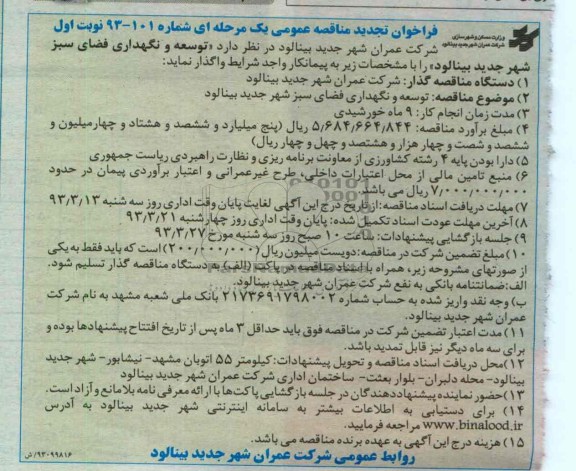 فراخوان تجدید مناقصه عمومی یک مرحله ای شماره ۱۰۱-۹۳ نوبت اول
وزارت مسکن و شهرسازی
شرکت عمران شهر جدید بینالود
شرکت عمران شهر جدید بینالود در نظر دارد «توسعه و نگهداری فضای سبز
شهر جدید بینالود» را با مشخصات زیر به پیمانکار واجد شرایط واگذار نماید:
۱) دستگاه مناقصه گذار: شرکت عمران شهر جدید بینالود
۲) موضوع مناقصه: توسعه و نگهداری فضای سبز شهر جدید بینالود
۳) مدت زمان انجام کار: ۹ ماه خورشیدی
۴) مبلغ برآورد مناقصه: ۵/۶۸۴/۶۶۴/۸۴۴ ریال (پنج میلیارد و ششصد و هشتاد و چهارمیلیون و
ششصد و شصت و چهار هزار و هشتصد و چهل و چهار ریال)
۵) دارا بودن پایه ۴ رشته کشاورزی از معاونت برنامه ریزی و نظارت راهبردی ریاست جمهوری
۶) منبع تامین مالی از محل اعتبارات داخلی، طرح غیرعمرانی و اعتبار برآوردی پیمان در حدود
۷/۰۰۰/۰۰۰/۰۰۰ ریال می باشد.
۷) مهلت دریافت اسناد مناقصه: از تاریخ درج این آگهی لغایت پایان وقت اداری روز سه شنبه ۹۳/۳/۱۳
۸) آخرین مهلت عودت اسناد تکمیل شده: پایان وقت اداری روز چهارشنبه ۹۳/۳/۲۱
۹) جلسه بازگشایی پیشنهادات: ساعت ۱۰ صبح روز سه شنبه مورخ ۹۳/۳/۲۷
۱۰) مبلغ تضمین شرکت در مناقصه: دویست میلیون ریال (۲۰۰/۰۰۰/۰۰۰) است که باید فقط به یکی
از صورتهای مشروحه زیر، همراه با اسناد مناقصه در پاکت (الف) به دستگاه مناقصه گذار تسلیم شود.
الف: ضمانتنامه بانکی به نفع شرکت عمران شهر جدید بینالود.
ب) وجه نقد واریز شده به حساب شماره ۲۱۷۳۶۹۱۷۹۸۰۰۲ بانک ملی شعبه مشهد به نام شرکت
عمران شهر جدید بینالود.
۱۱) مدت اعتبار تضمین شرکت در مناقصه فوق باید حداقل ۳ ماه پس از تاریخ افتتاح پیشنهادها بوده و
برای سه ماه دیگر نیز قابل تمدید باشد.
۱۲) محل دریافت اسناد مناقصه و تحویل پیشنهادات: کیلومتر ۵۵ اتوبان مشهد- نیشابور- شهر جدید
بینالود- محله دلبران- بلوار بعثت- ساختمان اداری شرکت عمران شهر جدید بینالود
۱۳) حضور نماینده پیشنهاددهندگان در جلسه بازگشایی پاکت ها با ارائه معرفی نامه بلامانع و آزاد است.
۱۴) برای دستیابی به اطلاعات بیشتر به سامانه اینترنتی شهر جدید بینالود به آدرس
www.binalood.ir مراجعه فرمایید.
۱۵) هزینه درج این آگهی به عهده برنده مناقصه می باشد.
روابط عمومی شرکت عمران شهر جدید بینالود
۹۳۰۹۹۸۱۶/ش